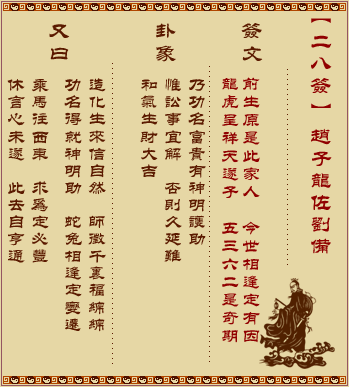 【二八簽】 趙子龍佐劉備
簽文
前生原是此家人 今世相逢定有因
龍虎呈祥天遂子 五三六二是奇期
卦象
乃功名富貴有神明護助
惟訟事宜解 否則久延難
和氣生財大吉
又曰
造化生來信自然 師徵千裏福綿綿
功名得就神明助 蛇兔相逢定變遷
乘馬往西東 求為定必豐
休言心未遂 此去自亨通